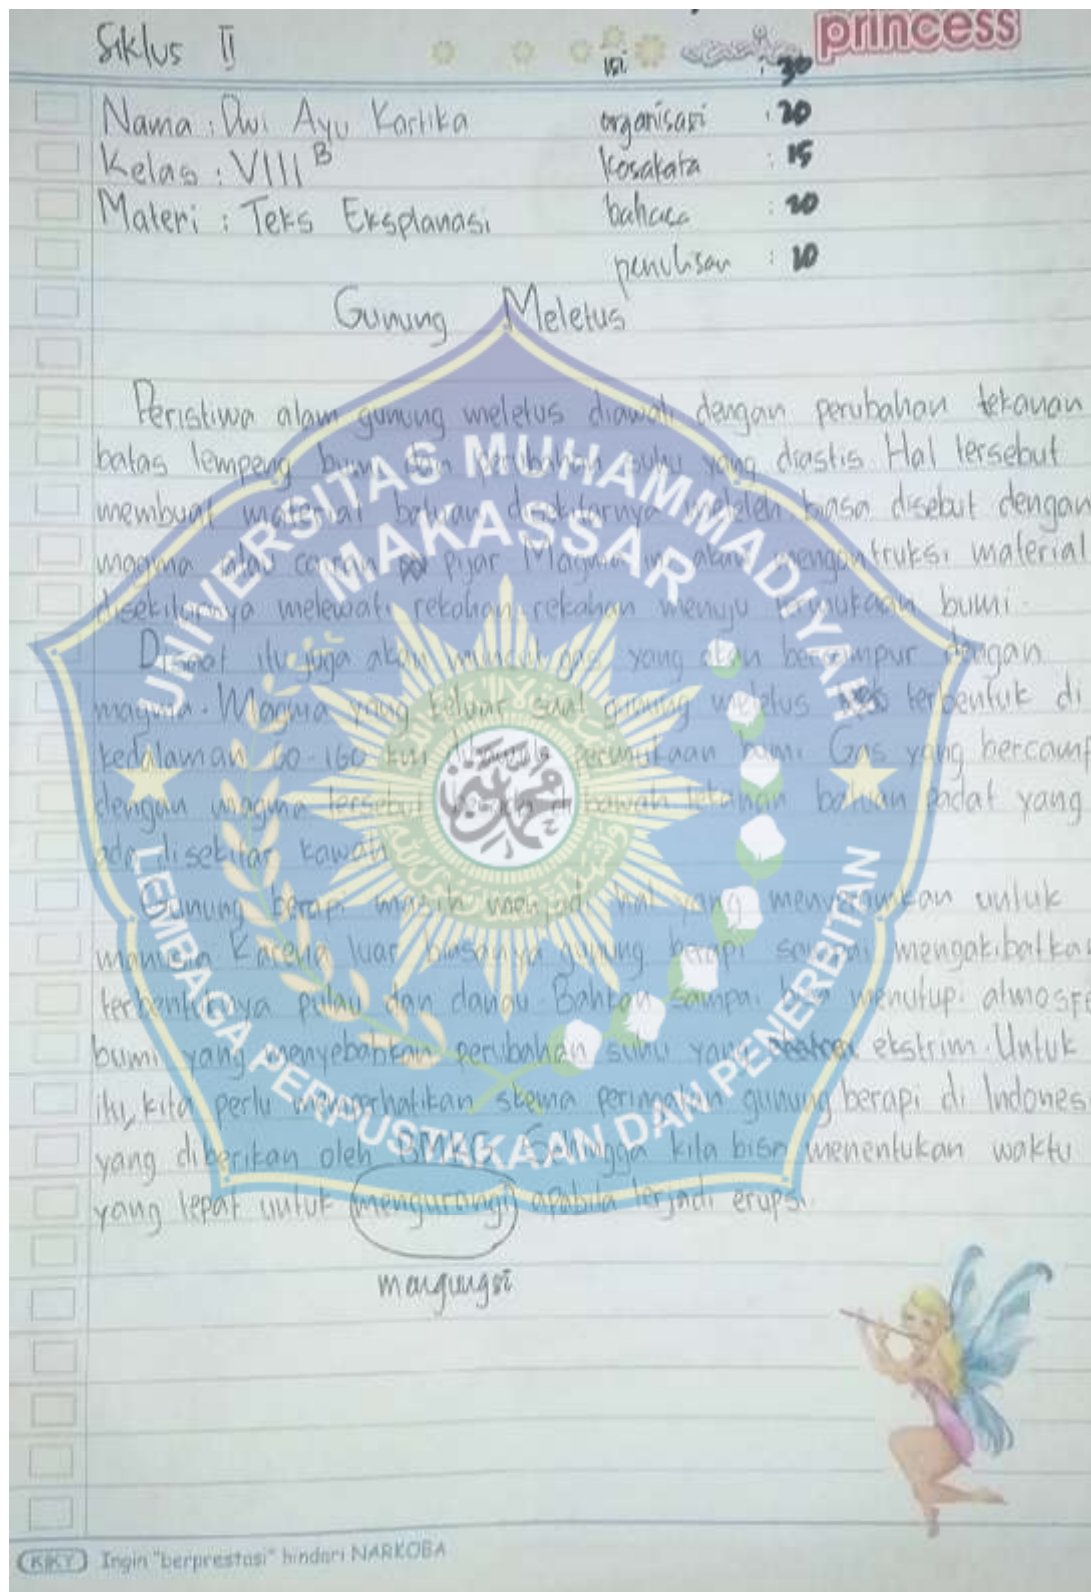 princess
Siklus II
isi : 30
Nama : Dwi Ayu Kartika organisasi : 20
Kelas : VIII B kosakata : 15
Materi : Teks Eksplanasi bahasa : 20
penulisan : 10
Gunung Meletus
Peristiwa alam gunung meletus diawali dengan perubahan tekanan
batas lempeng bumi dan perubahan suhu yang drastis Hal tersebut
membuat material batuan disekitarnya meleleh biasa disebut dengan
magma atau cairan pijar Magma ini akan mengontruksi material
disekitarnya melewati rekahan rekahan menuju permukaan bumi.
Disaat itu juga akan muncul gas yang akan bercampur dengan
magma. Magma yang keluar saat gunung meletus terbentuk di
kedalaman 60-160 km dibawah permukaan bumi Gas yang bercamp
dengan magma tersebut di bawah tekanan batuan padat yang
ada disekitar kawah
Gunung berapi masih menjadi hal yang menyeramkan untuk
manusia Karena luar biasanya gunung berapi sampai mengakibatka
terbentuknya pulau dan danau. Bahkan sampai bisa menutupi atmosf
bumi yang menyebabkan perubahan suhu yang ekstrim. Untuk
itu, kita perlu memperhatikan skema peringatan gunung berapi di Indones
yang diberikan oleh BMKG Sehingga kita bisa menentukan waktu
yang tepat untuk mengurangi apabila terjadi erupsi.
mengungsi
UNIVERSITAS MUHAMMADIYAH
MAKASSAR
LEMBAGA PERPUSTAKAAN DAN PENERBITAN
KIKY Ingin "berprestasi" hindari NARKOBA